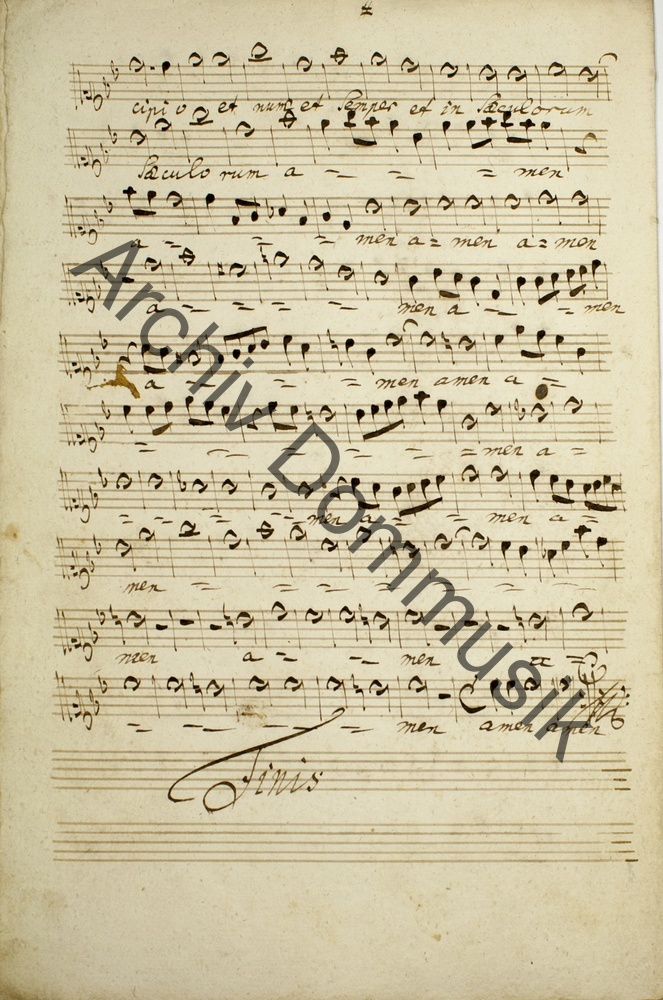 4
cipio et nunc et Semper et in Sæculorum
Sæculo rum a - - = men
a = - = men a = men a = men
a - = = = men a - = men
a - = = men amen a =
= = = = = men a =
= = = = = men a = = men a =
men = = = = =
men a = - men a =
- - - - - men amen amen
Finis
Archiv Dommusik